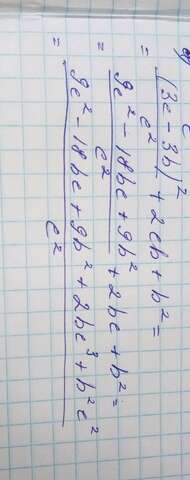 (3c-3b)²/c² + 2cb + b² =
= 9c² - 18bc + 9b²/c² + 2bc + b² =
= 9c² - 18bc + 9b² + 2bc³ + b²c²/c²